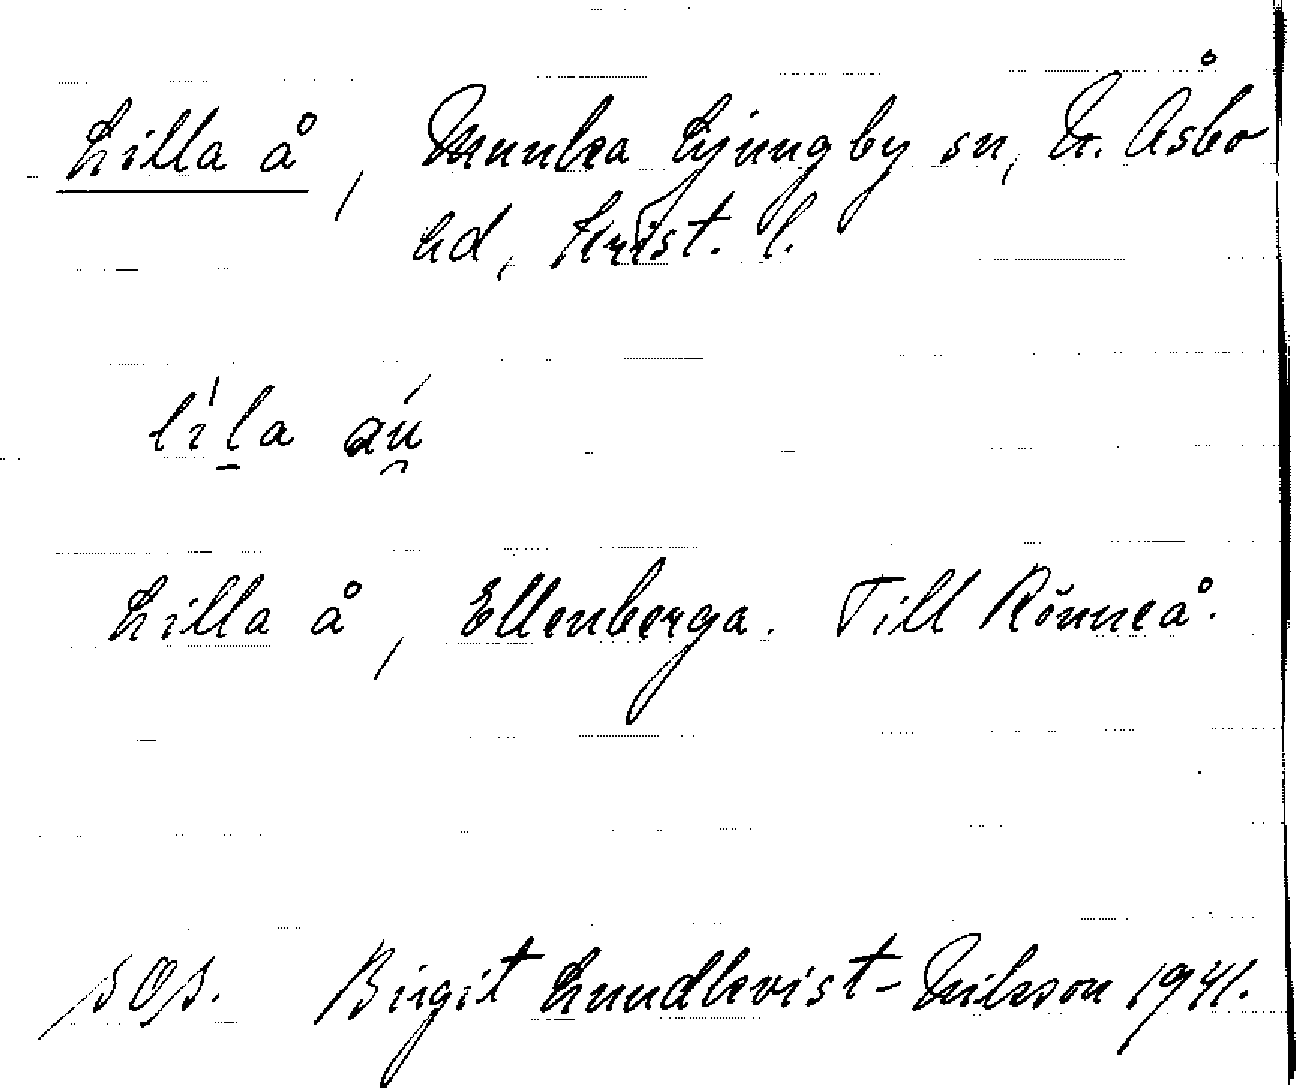 Lilla å, Munka Ljungby sn, N. Åsbo
hd, Krist. l.
li̍l̠a áu̯
Lilla å, Ellenberga. Till Rönneå.
Birgit Lundkvist-Nilsson 1941.